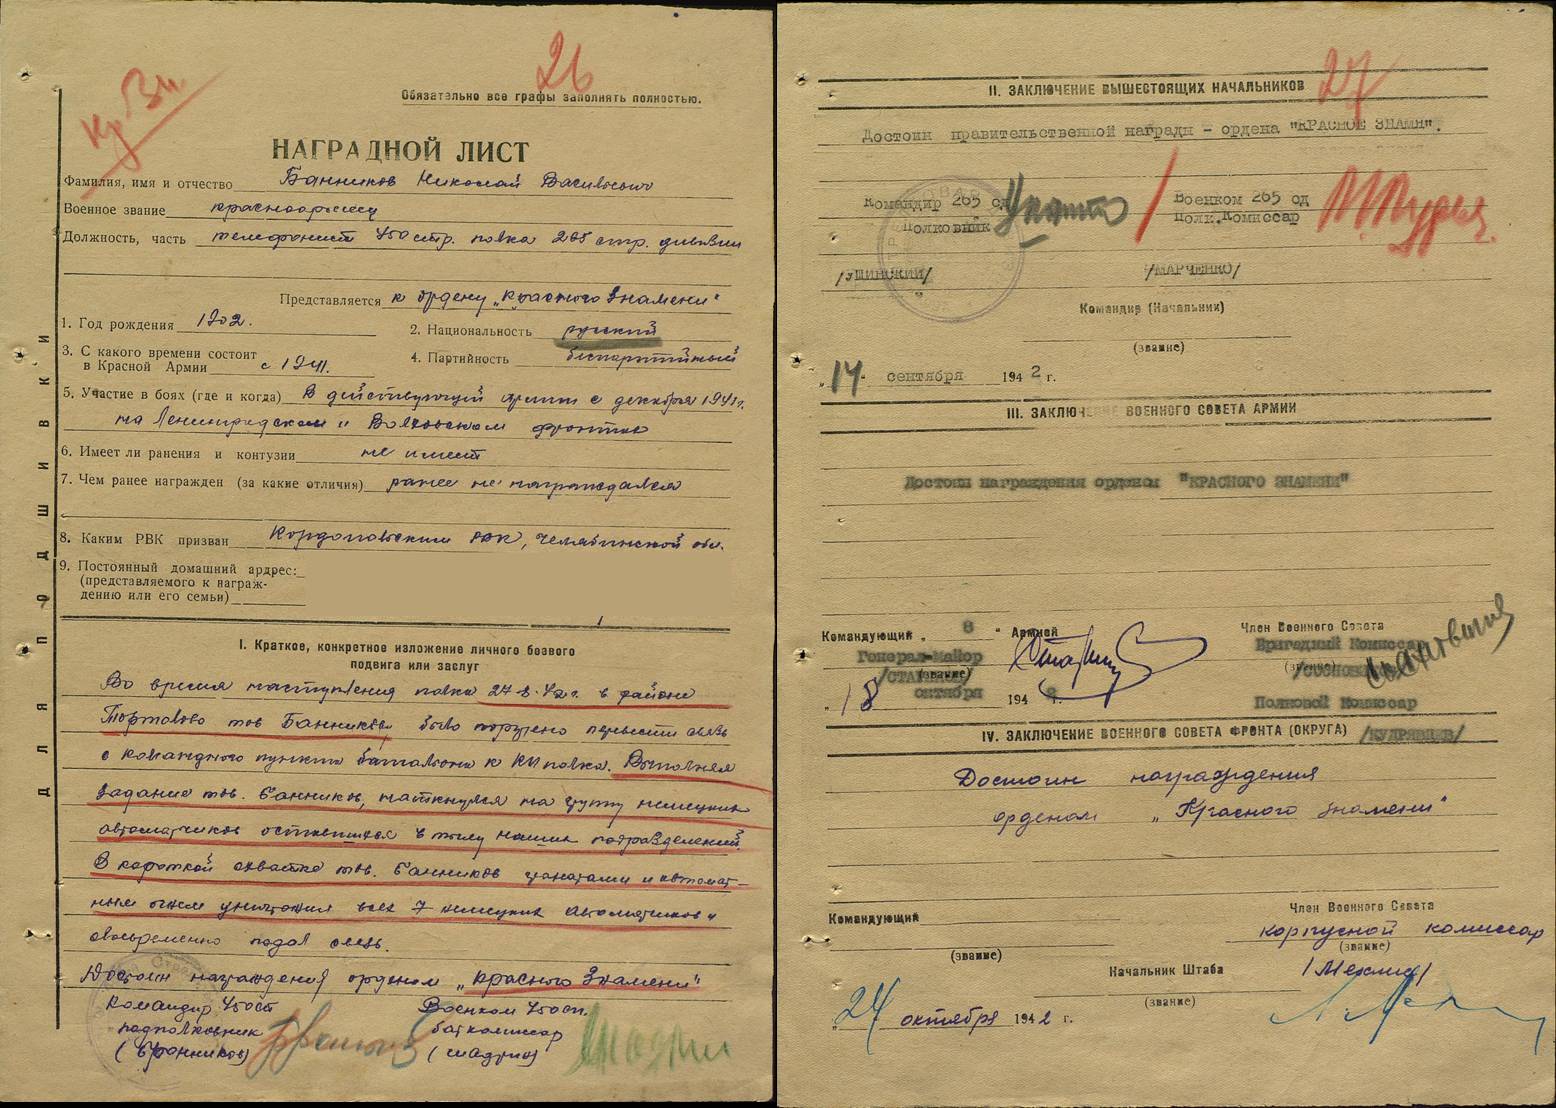 26
Кр. Зн.
Обязательно все графы заполнять полностью.
НАГРАДНОЙ ЛИСТ
Фамилия, имя и отчество Банников Николай Васильевич
Военное звание красноармеец
Должность, часть телефонист 450 стр. полка 265 стр. дивизии
Представляется к ордену „Красного Знамени"
1. Год рождения 1902. 2. Национальность русский
3. С какого времени состоит в Красной Армии с 1941. 4. Партийность беспартийный
5. Участие в боях (где и когда) В действующей армии с декабря 1941 г.
на Ленинградском и Волховском фронтах
6. Имеет ли ранения и контузии не имеет
7. Чем ранее награжден (за какие отличия) ранее не награждался
8. Каким РВК призван РВК, Челябинской обл.
9. Постоянный домашний ардрес:
(представляемого к награж-
дению или его семьи)
ДЛЯ ПОДШИВКИ
I. Краткое, конкретное изложение личного боевого
подвига или заслуг
Во время наступления полка 27-8-42 г. в районе
Тортолово тов. Банникову было поручено перенести связь
с командного пункта батальона к КП полка. Выполняя
задание тов. Банников, наткнулся на группу немецких
автоматчиков оставшихся в тылу наших подразделений.
В короткой схватке тов. Банников гранатами и автомат-
ным огнем уничтожил всех 7 немецких автоматчиков и
своевременно подал связь.
Достоин награждения орденом „Красного Знамени"
Командир 450 сп Военком 450 сп.
подполковник бат комиссар
(Фронников) (Шадрин)
27
II. ЗАКЛЮЧЕНИЕ ВЫШЕСТОЯЩИХ НАЧАЛЬНИКОВ
Достоин правительственной награды - ордена "КРАСНОЕ ЗНАМЯ".
Командир 265 сд Военком 265 сд
Полковник Полк.Комиссар
/УШИНСКИЙ/ /МАРЧЕНКО/
Командир (Начальник)
(звание)
„14" сентября 1942 г.
III. ЗАКЛЮЧЕНИЕ ВОЕННОГО СОВЕТА АРМИИ
Достоин награждения орденом "КРАСНОГО ЗНАМЕНИ"
Командующий „ 8 " Армией Член Военного Совета
Генерал-Майор Бригадный Комиссар
(звание) (звание)
/СТАРИКОВ/
„18 октября 1942 г. Полковой Комиссар
IV. ЗАКЛЮЧЕНИЕ ВОЕННОГО СОВЕТА ФРОНТА (ОКРУГА) /КУДРЯВЦЕВ/
Достоин награждения
орденом „Красного Знамени"
Командующий Член Военного Совета
корпусной комиссар
(звание) (звание)
Начальник Штаба /Мехлис/
(звание)
„24 октября 1942 г.